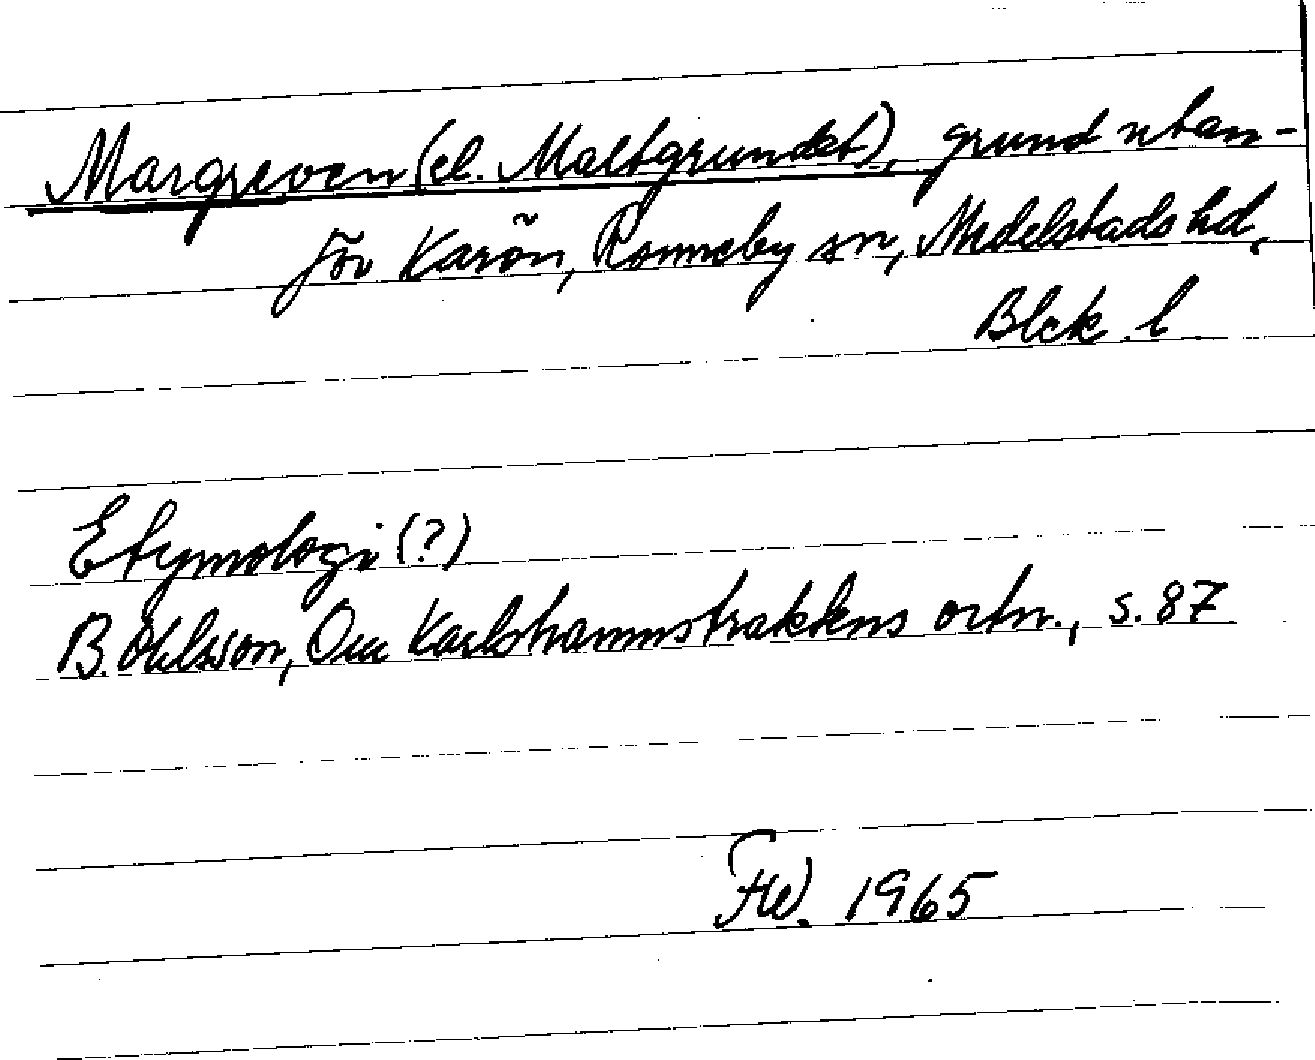 Margreven (el. Maltgrundet), grund utan-
för Karön, Ronneby sn, Medelstads hd,
Blek. l
Etymologi (?)
B. Ohlsson, Om Karlshamnstraktens ortn., s. 87
1965